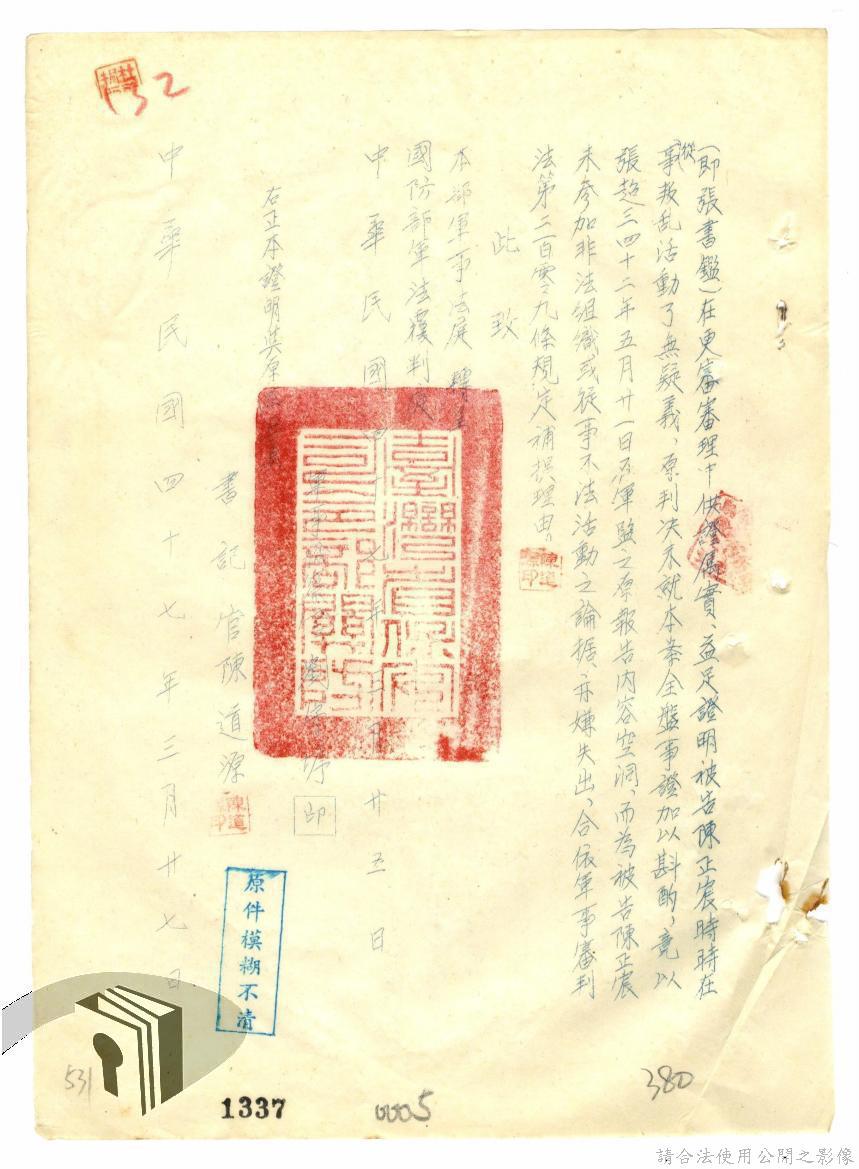 (即張書鑑)在更審審理中供證屬實、益足證明被告陳正宸時時在
從事叛乱活動了無疑義、原判決未就本案全盤事證加以斟酌,竟以
張超三四十二年五月廿一日於軍監之原報告內容空洞、而為被告陳正宸
未参加非法組織或從事不法活動之論据、亦嫌失出、合依軍事審判
法第二百零九條規定補提理由、
此致
本部軍事法庭 轉呈
國防部軍法覆判庭
中華民國四十七年三月廿五日
軍事檢察官
印
右正本證明與原本無異
書記官陳道源
中華民國四十七年三月廿七日
陳道源印
原件模糊不清
132
531
1337
0005
380
請合法使用公開之影像